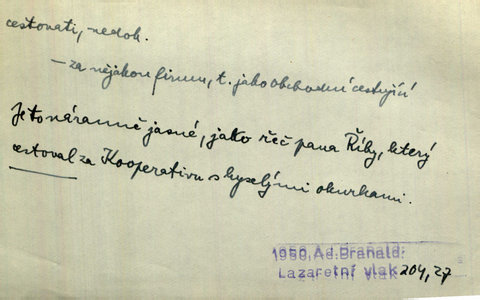 cestovati, nedok.
— za nějakou firmu, t. jako obchodní cestující
Je to náramně jasné, jako řeč pana Říhy, který
cestoval za Kooperativu s kyselými okurkami.
1950, Ad. Branald:
Lazaretní vlak 204, 27